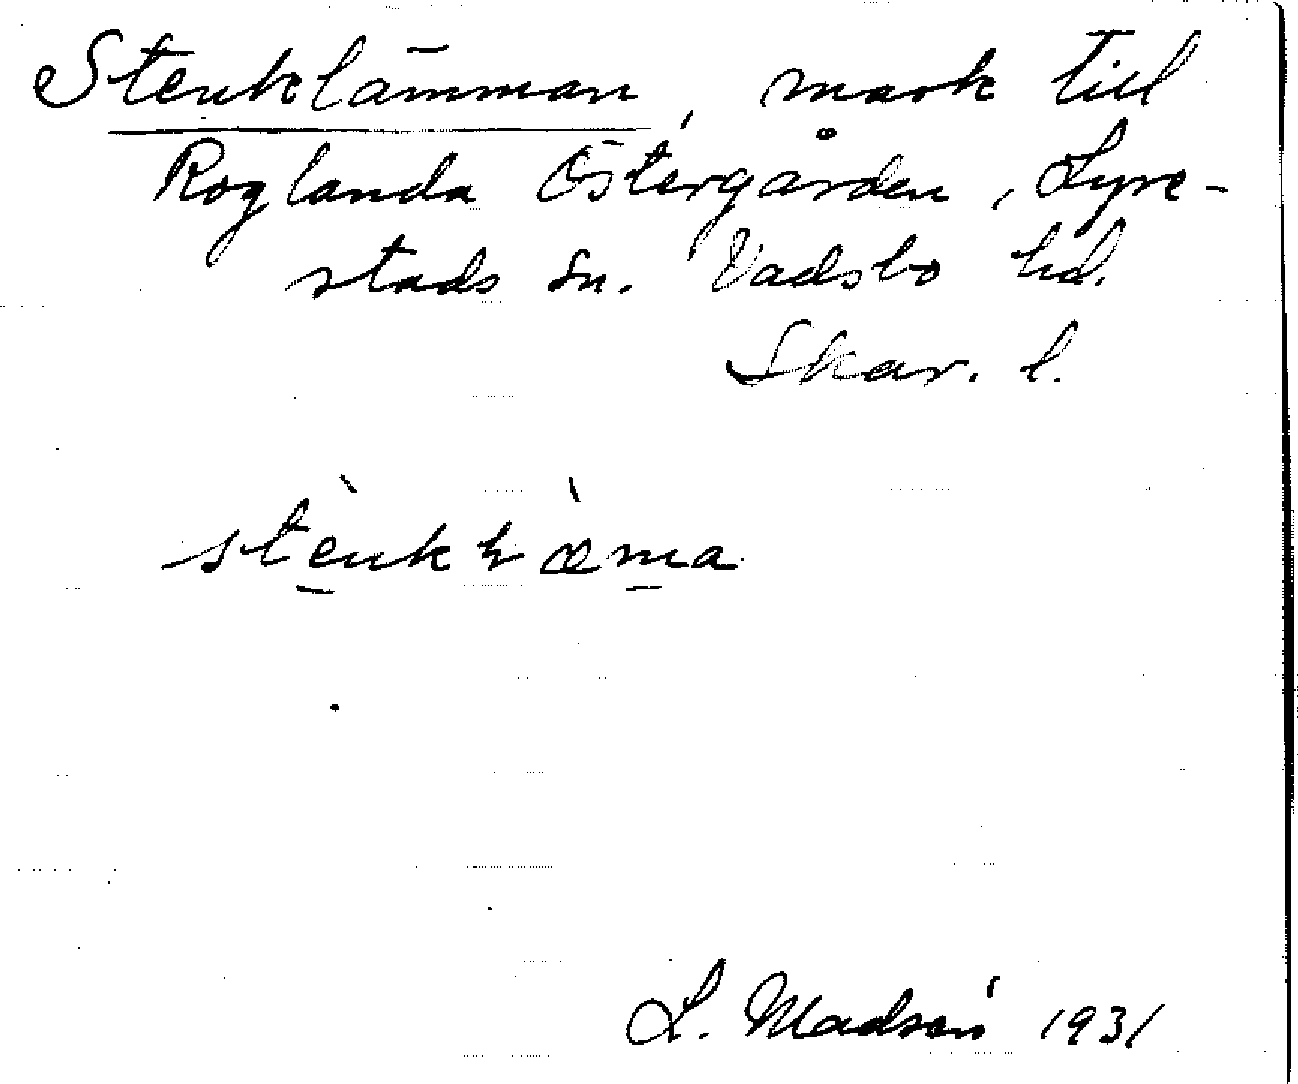 Stenklämman, mark till
Roglanda Östergården, Lyre-
stads sn. Vadsbo hd.
Skar. l.
stènkɫ̀æma
L. Madsén 1931